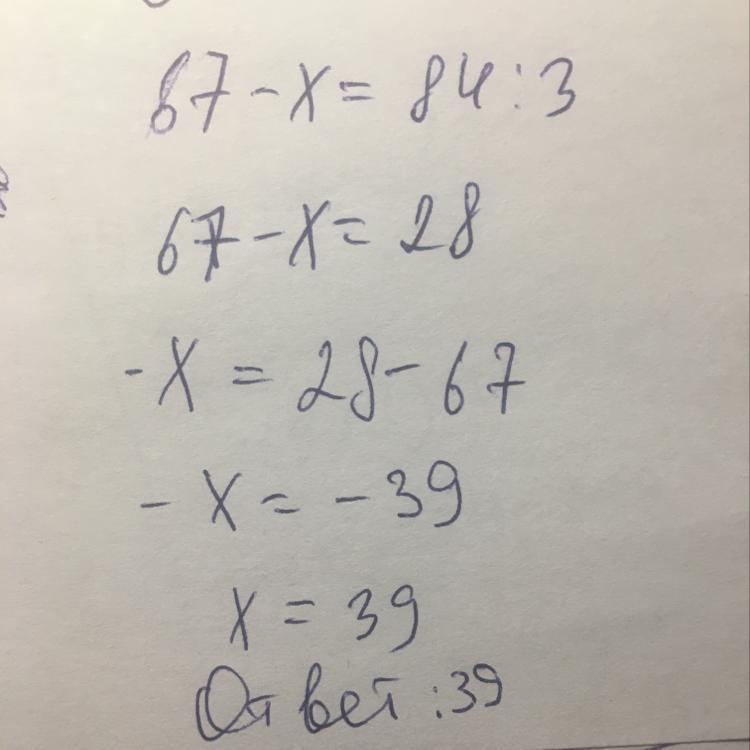 67-x=84:3
67-x=28
-x=28-67
-x=-39
x=39
Ответ:39